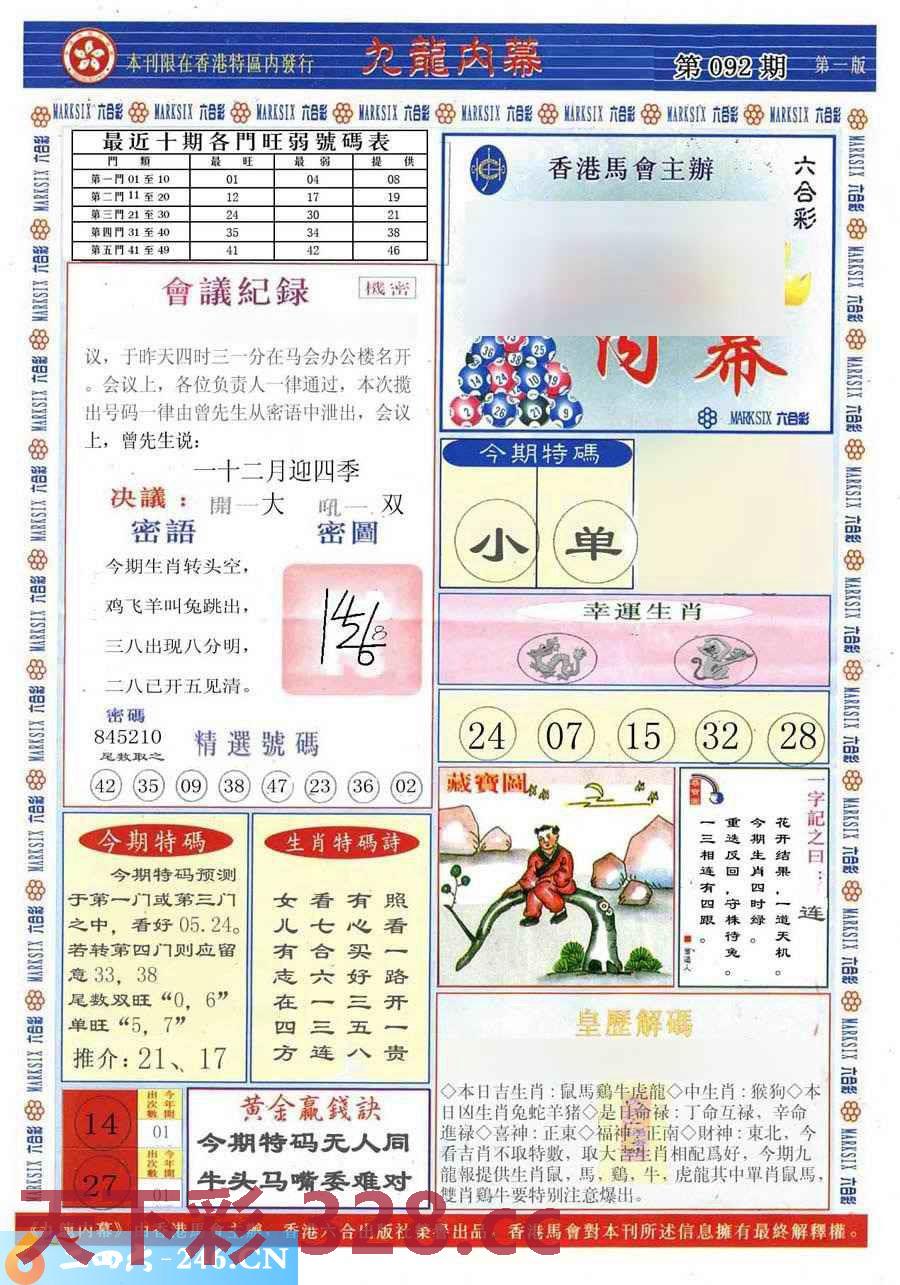 本刊限在香港特區内發行
九龍内幕
第 092 期
第一版
MARKSIX 六合彩
最近十期各門旺弱號碼表
門 類 最 旺 最 弱 提 供
第一門 01 至 10 01 04 08
第二門 11 至 20 12 17 19
第三門 21 至 30 24 30 21
第四門 31 至 40 35 34 38
第五門 41 至 49 41 42 46
香港馬會主辦
六合彩
内幕
MARKSIX 六合彩
會議紀録
機密
议，于昨天四时三一分在马会办公楼名开
。会议上，各位负责人一律通过，本次攬
出号码一律由曾先生从密语中泄出，会议
上，曾先生说：
一十二月迎四季
决議： 開一大 吼一 双
密語 密圖
今期生肖转头空，
鸡飞羊叫兔跳出，
三八出现八分明，
二八已开五见清。
密碼
845210
尾数取之
精選號碼
42 35 09 38 47 23 36 02
今期特碼
小 单
幸運生肖
24 07 15 32 28
藏寶圖
一字記之曰：连
花开结果，一道天机。
今期生肖四时绿。
重迭反回，守株待兔。
一三相连有四跟。
今期特碼
今期特码预测
于第一门或第三门
之中，看好 05.24。
若转第四门则应留
意 33，38
尾数双旺“0，6”
单旺“5，7”
推介：21、17
生肖特碼詩
女看有照
儿七心看
有合买一
志六好路
在一三开
四三五一
方连八贵
皇歷解碼
◇本日吉生肖：鼠馬鷄牛虎龍◇中生肖：猴狗◇本
日凶生肖兔蛇羊猪◇是日命禄：丁命互禄，辛命
進禄◇喜神：正東◇福神：正南◇財神：東北，今
看吉肖不取特數，取大吉生肖相配爲好，今期九
龍報提供生肖鼠，馬，鷄，牛，虎龍其中單肖鼠馬，
雙肖鷄牛要特别注意爆出。
14
今年開出次數
01
27
今年開出次數
01
黄金贏錢訣
今期特码无人同
牛头马嘴委难对
《九龍内幕》由香港馬會主辦，香港六合出版社榮譽出品，香港馬會對本刊所述信息擁有最終解釋權。
天下彩 328.cc
246.CN